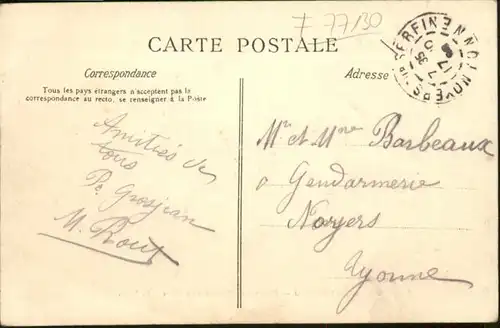 77130
CARTE POSTALE
Correspondance
Adresse
Tous les pays étrangers n'acceptent pas la
correspondance au recto, se renseigner à la Poste
Amitiés de
tous
Pe Grosjean
M. Roux
Mr et Mme Barbeaux
Gendarmerie
Noyers
Yonne
NOYERS-SUR-SEREIN
YONNE